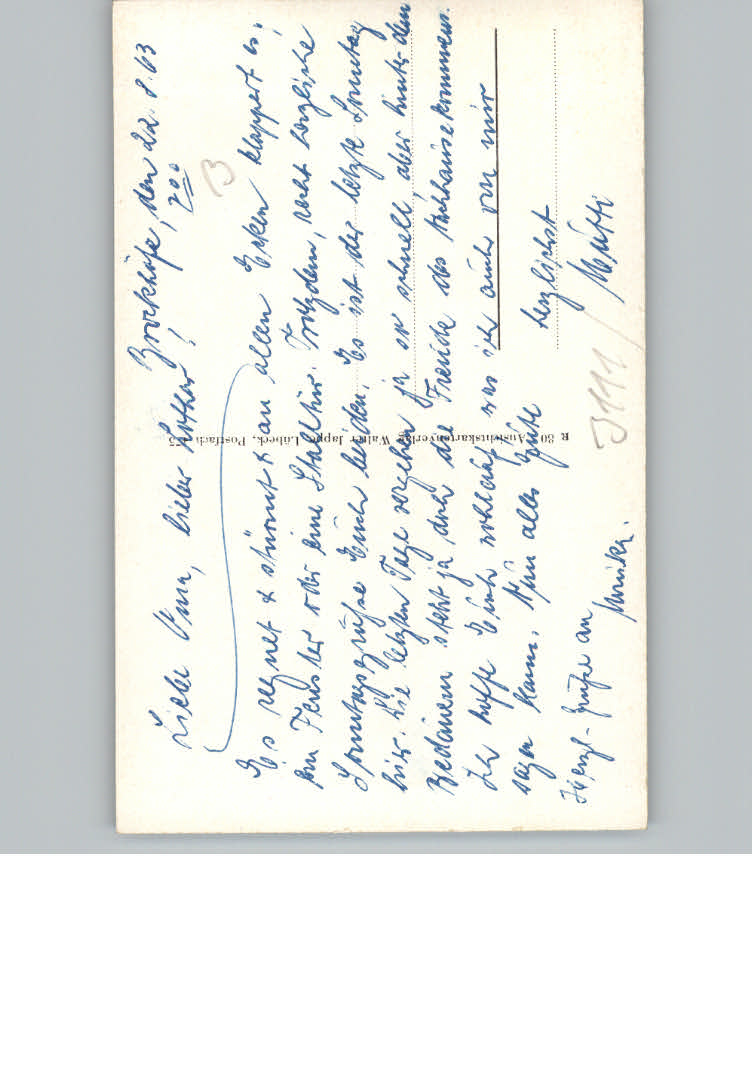 Brockhöfe, den 22. 8. 63
7oo
Liebe Oma, lieber Lothar!
Es regnet & stürmt & an allen Ecken klappert es,
ein Fenster oder eine Stalltür. Trotzdem, recht herzliche
Sonntagsgrüße Euch beiden. Es ist der letzte Sonntag
hier. Die letzten Tage vergehen ja so schnell, aber hinter dem
Bedauern steht ja doch die Freude des Nachhausekommens.
Ich hoffe Euch wohlauf was ich auch von mir
sagen kann. Nun alles Gute
herzlichst
Mutti
Herzl. Grüße an
B
J111/
R 30 Ansichtskartenverlag Walter Jappe, Lübeck, Postfach